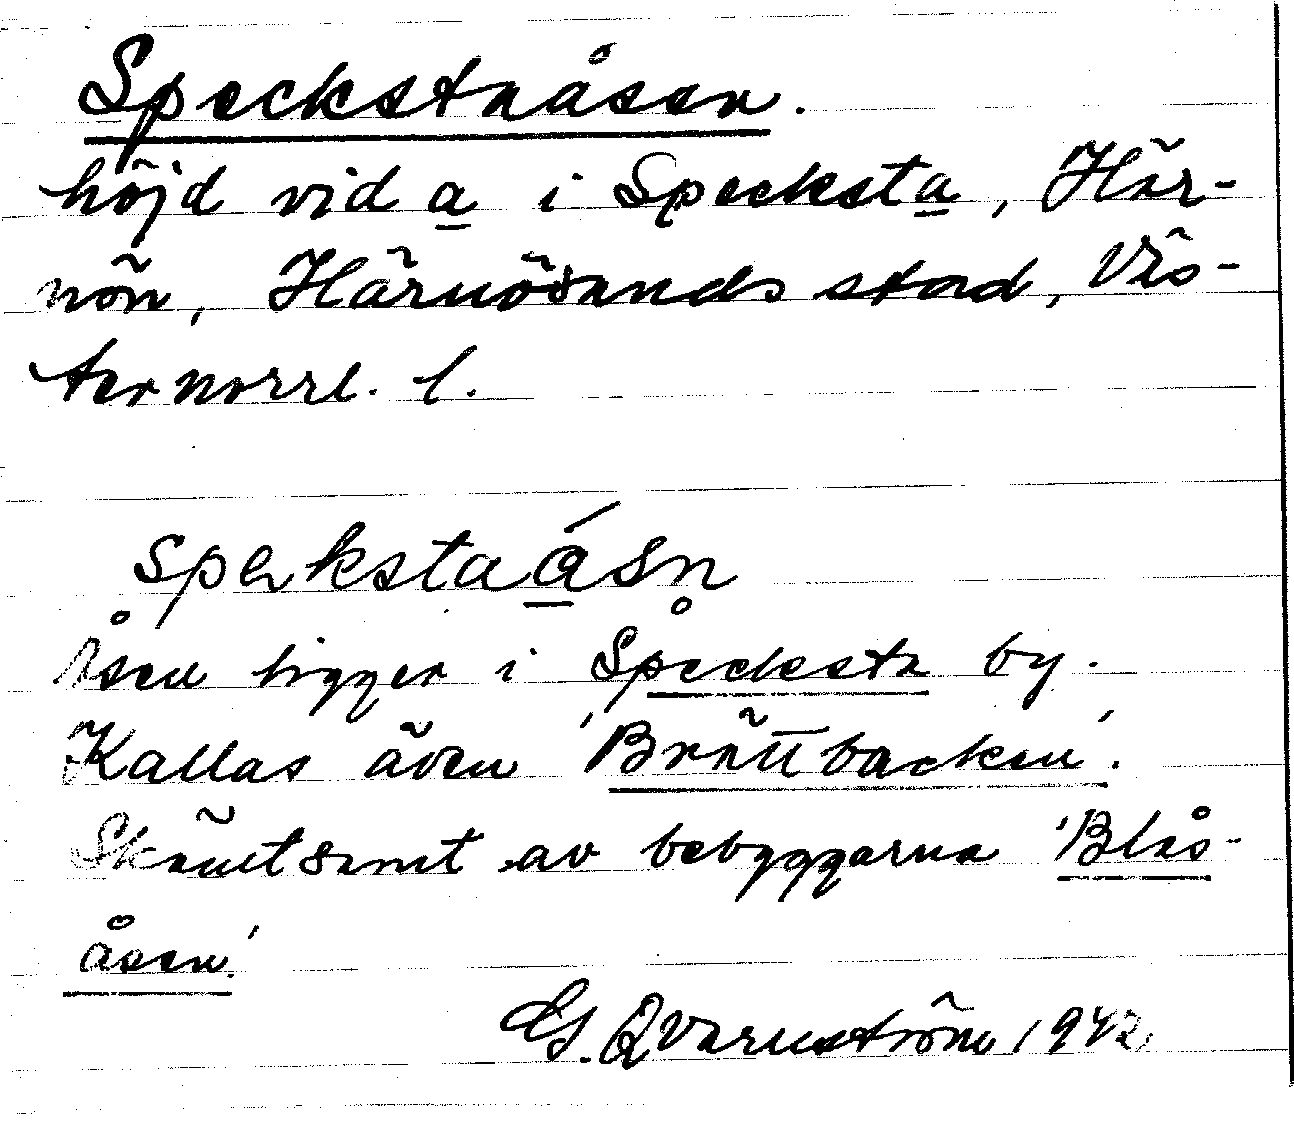 Speckstaåsen.
höjd vid a i Specksta, Här-
nön, Härnösands stad, Väs-
ternorrl. l.
spekstaåsn
Åsen ligger i Specksta by.
Kallas även 'Brättbacken'.
Skämtsamt av bebyggarna 'Blås-
åsen.'
G. Qvarnström 1942